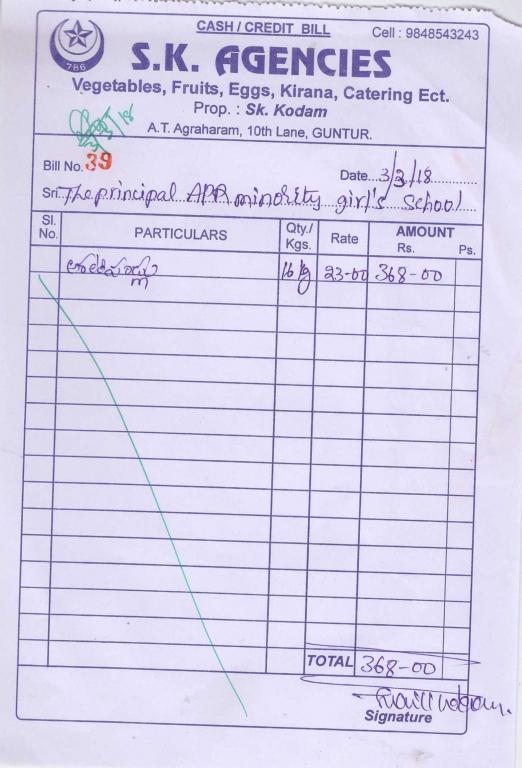 CASH / CREDIT BILL
Cell : 9848543243
786
S.K. AGENCIES
Vegetables, Fruits, Eggs, Kirana, Catering Ect.
Prop. : Sk. Kodam
A.T. Agraharam, 10th Lane, GUNTUR.
Bill No. 39
Date...3/3/18
Sri. The principal APR minority girl's School
Sl. No. PARTICULARS Qty./ Kgs. Rate AMOUNT Rs. Ps.
16 kg 23-00 368-00
TOTAL 368-00
Signature